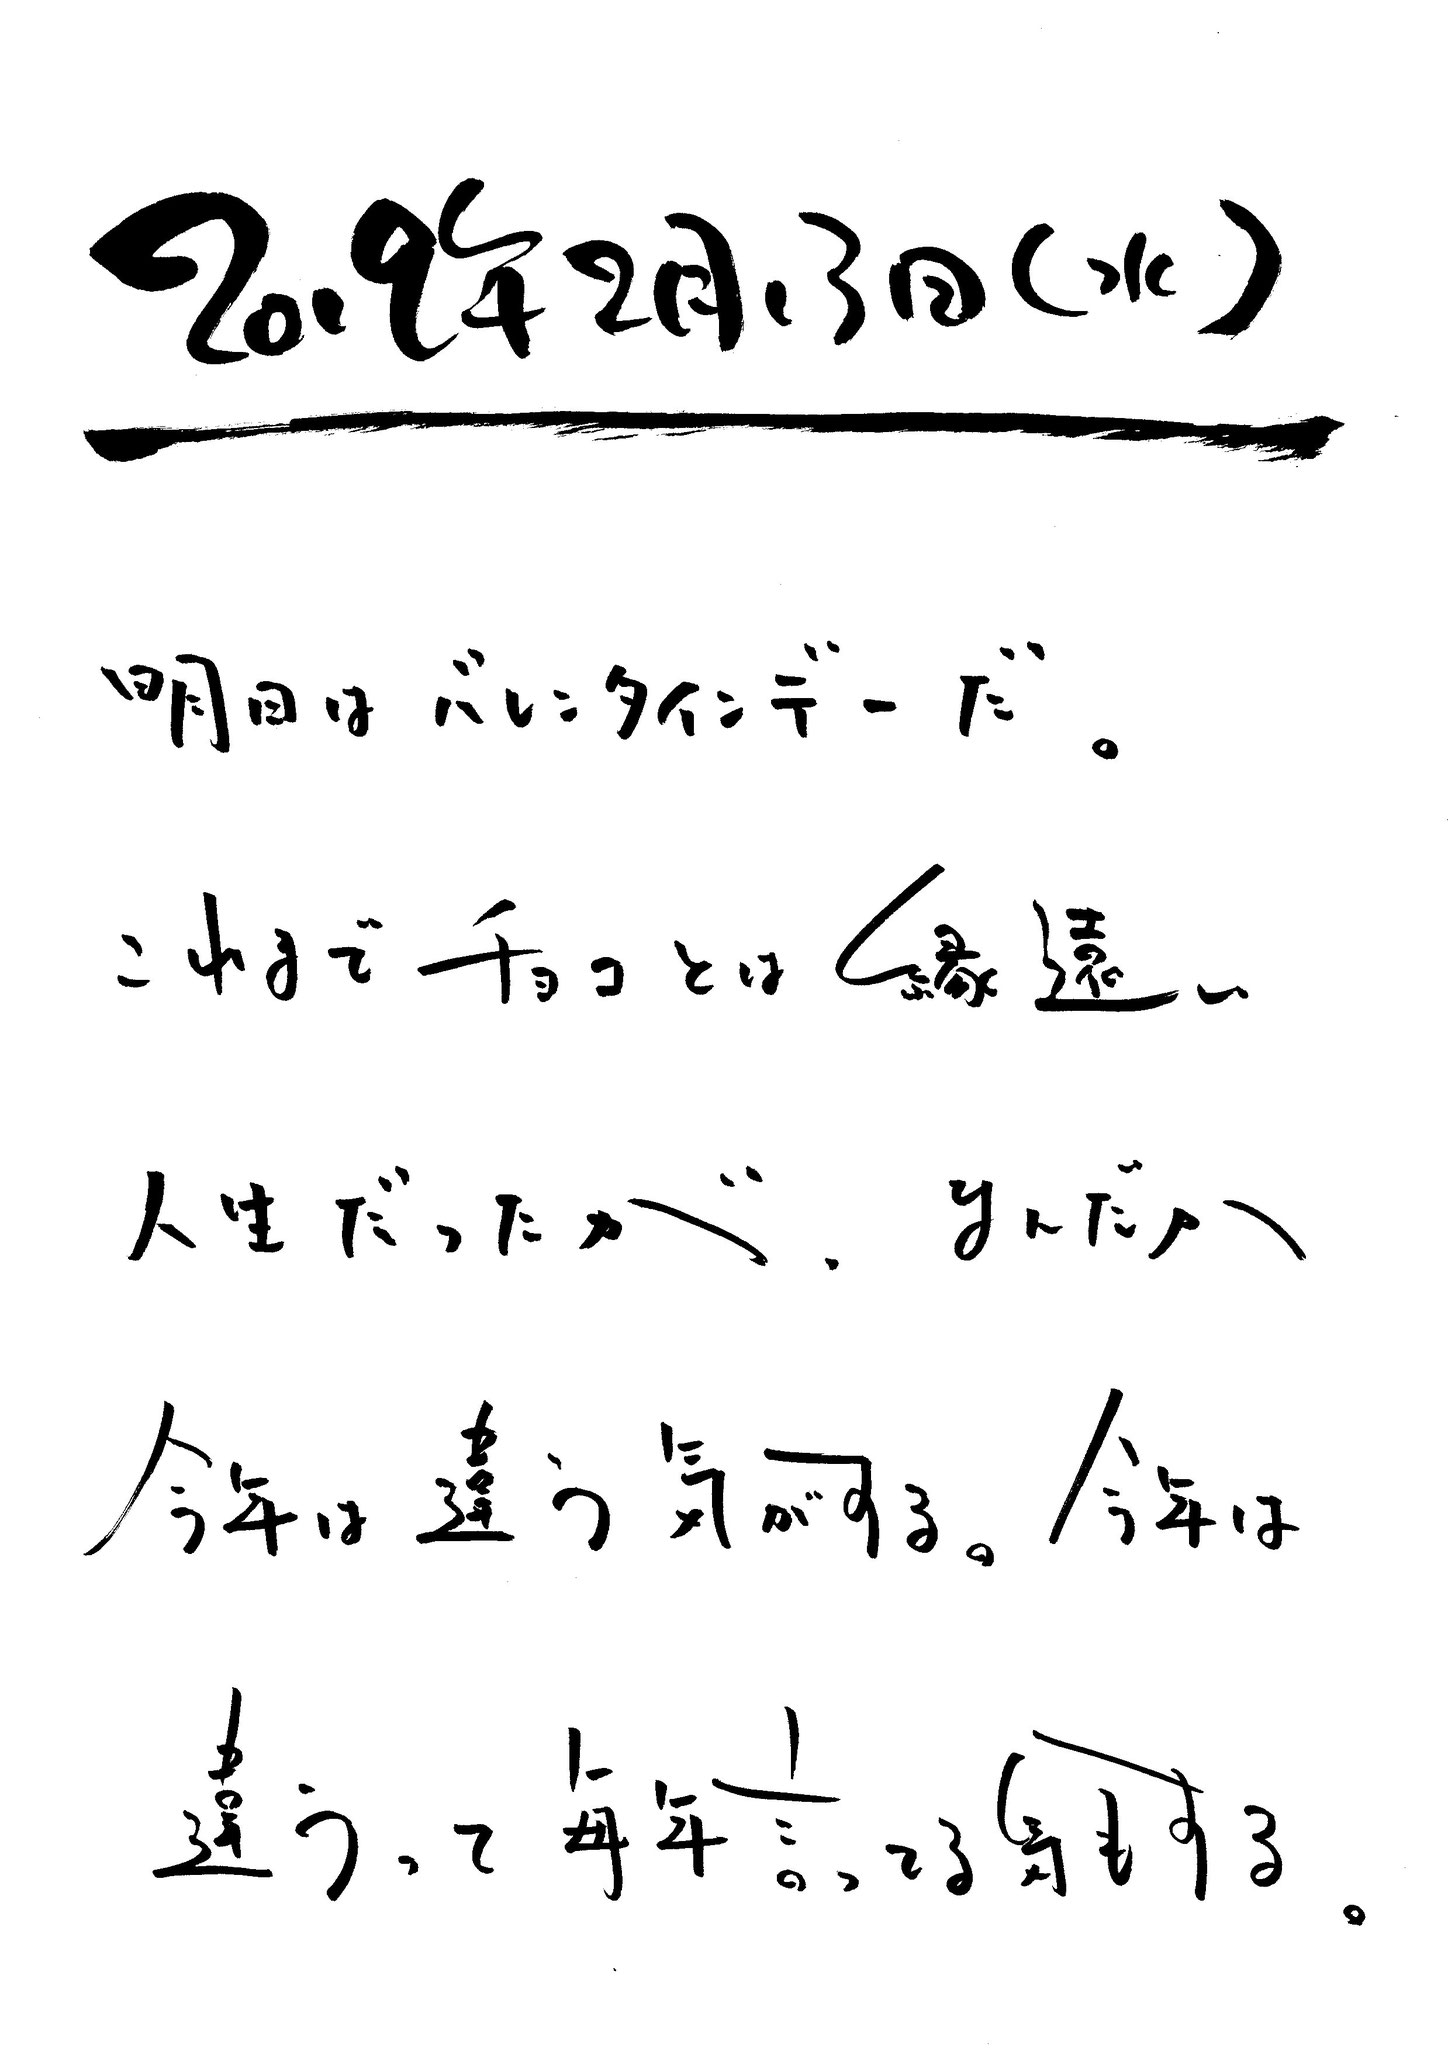 2019年2月13日(水)
明日はバレンタインデーだ。
これまでチョコとは縁遠い
人生だったが、なんだか
今年は違う気がする。今年は
違うって毎年言ってる気もする。